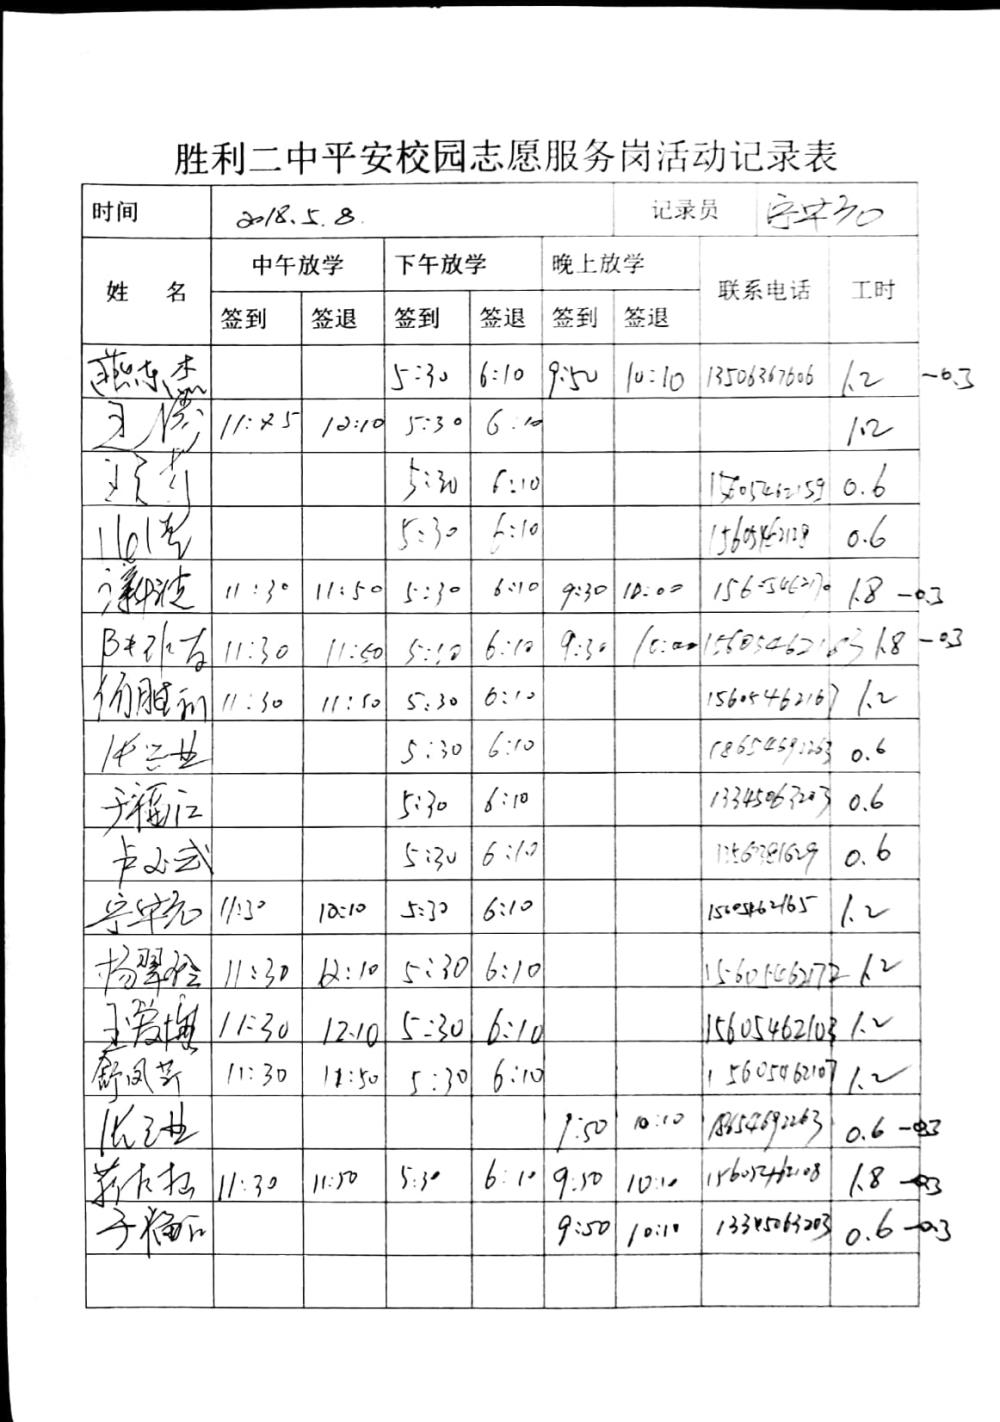 胜利二中平安校园志愿服务岗活动记录表
时间 2018.5.8. 记录员
姓 名 中午放学 下午放学 晚上放学 联系电话 工时
签到 签退 签到 签退 签到 签退
5:30 6:10 9:50 10:10 13506367606 1.2 -0.3
11:45 12:10 5:30 6:10 1.2
5:30 6:10 15605462159 0.6
5:30 6:10 0.6
11:30 11:50 5:30 6:10 9:30 10:00 15605462170 1.8 -0.3
11:30 11:50 6:10 9:30 1.8 -0.3
11:30 11:50 5:30 6:10 15605462167 1.2
5:30 6:10 18654692263 0.6
于福江 5:30 6:10 13345063203 0.6
5:30 6:10 0.6
11:30 12:10 5:30 6:10 15605462165 1.2
杨翠玲 11:30 12:10 5:30 6:10 15605462172 1.2
王爱博 11:30 12:10 5:30 6:10 15605462103 1.2
舒凤芹 11:30 11:50 5:30 6:10 15605462107 1.2
9:50 10:10 18654692263 0.6 -0.3
11:30 11:50 5:30 6:10 9:50 10:10 15605462108 1.8 -0.3
9:50 10:10 13345063203 0.6 -0.3